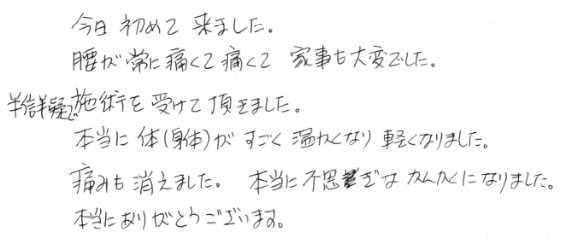 今日 初めて 来ました。
腰が 常に 痛くて 痛くて 家事も大変でした。
半信半疑で施術を受けて頂きました。
本当に 体(身体)が すごく 温かくなり 軽くなりました。
痛みも 消えました。 本当に不思ぎな かんかくになりました。
本当にありがとうございます。